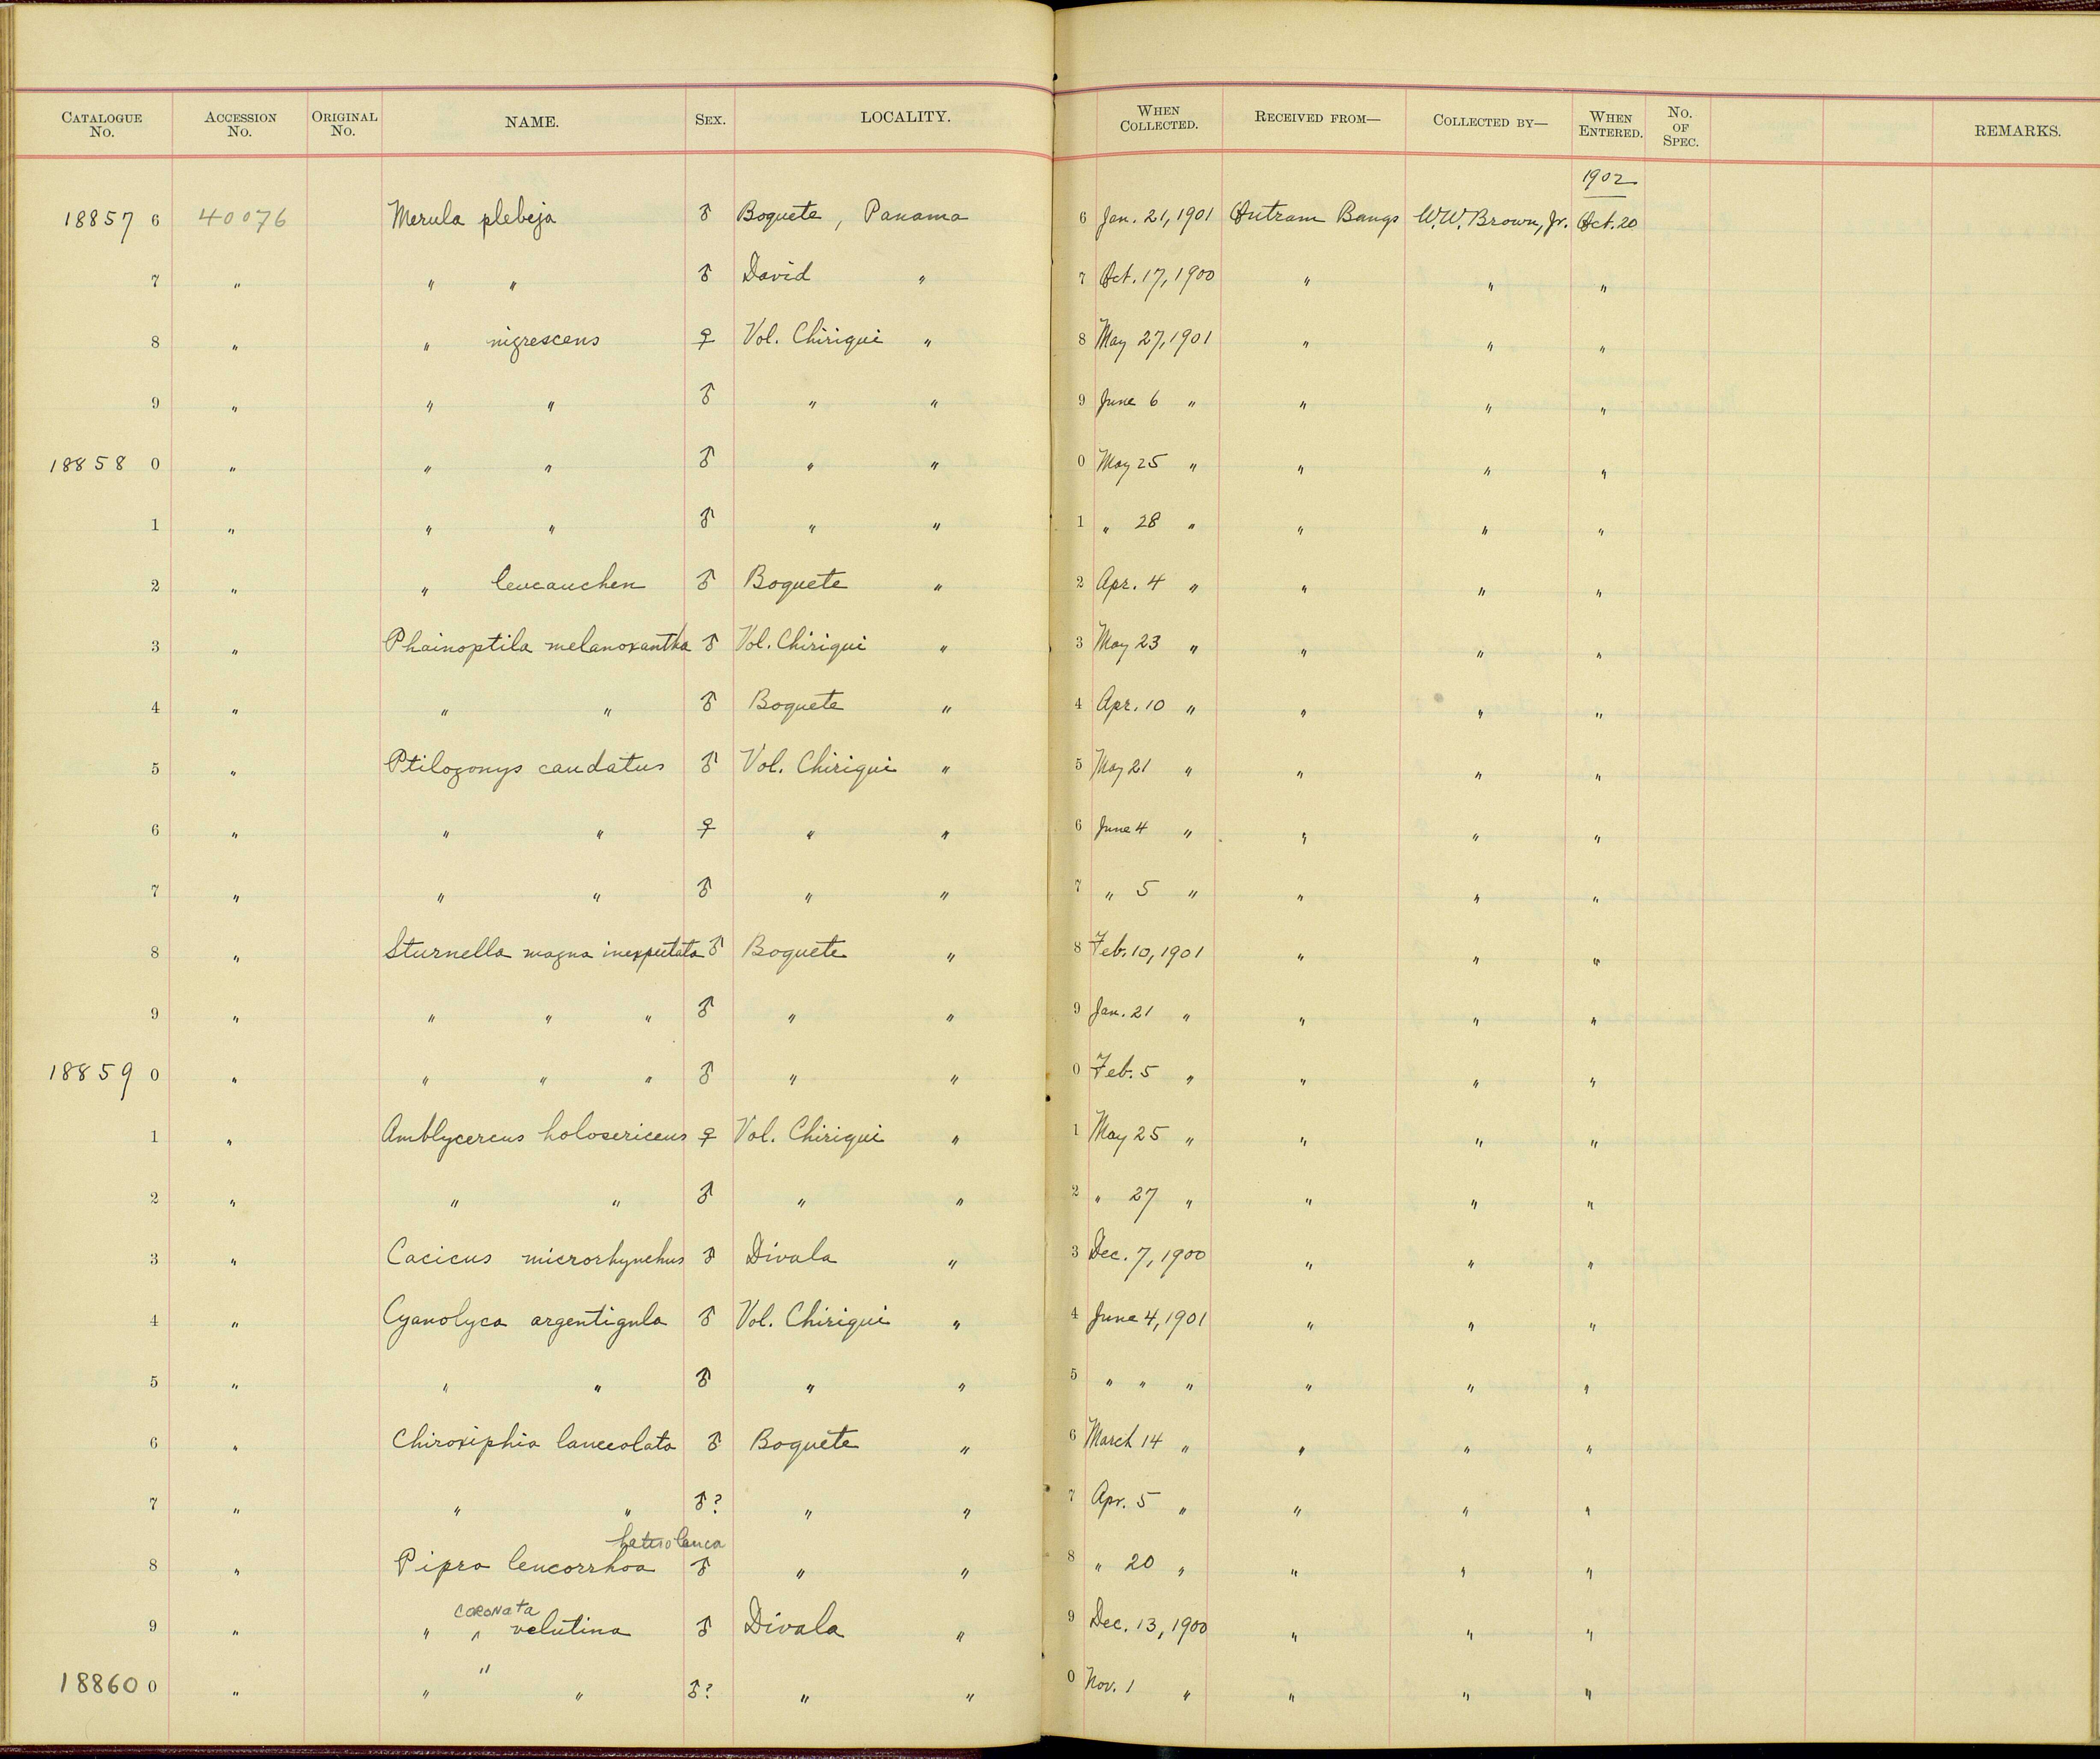 CATALOGUE No. ACCESSION No. ORIGINAL No. NAME. SEX. LOCALITY. WHEN COLLECTED. RECEIVED FROM— COLLECTED BY— WHEN ENTERED. No. OF SPEC. REMARKS.
1902
18857 6 40076 Merula plebeja ♂ Boquete, Panama 6 Jan. 21, 1901 Outram Bangs W.W. Brown, Jr. Oct. 20
7 " " " ♂ David " 7 Oct. 17, 1900 " " "
8 " " nigrescens ♀ Vol. Chiriqui " 8 May 27, 1901 " " "
9 " " " ♂ " " 9 June 6 " " " "
18858 0 " " " ♂ " " 0 May 25 " " " "
1 " " " ♂ " " 1 " 28 " " " "
2 " " leucauchen ♂ Boquete " 2 Apr. 4 " " " "
3 " Phainoptila melanoxantha ♂ Vol. Chiriqui " 3 May 23 " " " "
4 " " " ♂ Boquete " 4 Apr. 10 " " " "
5 " Ptilogonys caudatus ♂ Vol. Chiriqui " 5 May 21 " " " "
6 " " " ♀ " " 6 June 4 " " " "
7 " " " ♂ " " 7 " 5 " " " "
8 " Sturnella magna inexpectata ♂ Boquete " 8 Feb. 10, 1901 " " "
9 " " " " ♂ " " 9 Jan. 21 " " " "
18859 0 " " " " ♂ " " 0 Feb. 5 " " " "
1 " Amblycercus holosericeus ♀ Vol. Chiriqui " 1 May 25 " " " "
2 " " " ♂ " " 2 " 27 " " " "
3 " Cacicus microrhynchus ♂ Divala " 3 Dec. 7, 1900 " " "
4 " Cyanolyca argentigula ♂ Vol. Chiriqui " 4 June 4, 1901 " " "
5 " " " ♂ " " 5 " " " " " "
6 " Chiroxiphia lanceolata ♂ Boquete " 6 March 14 " " " "
7 " " " ♂? " " 7 Apr. 5 " " " "
heteroleuca
8 " Pipra leucorrhoa ♂ " " 8 " 20 " " " "
coronata
9 " " ^ velutina ♂ Divala " 9 Dec. 13, 1900 " " "
"
18860 0 " " " ♂? " " 0 Nov. 1 " " " "